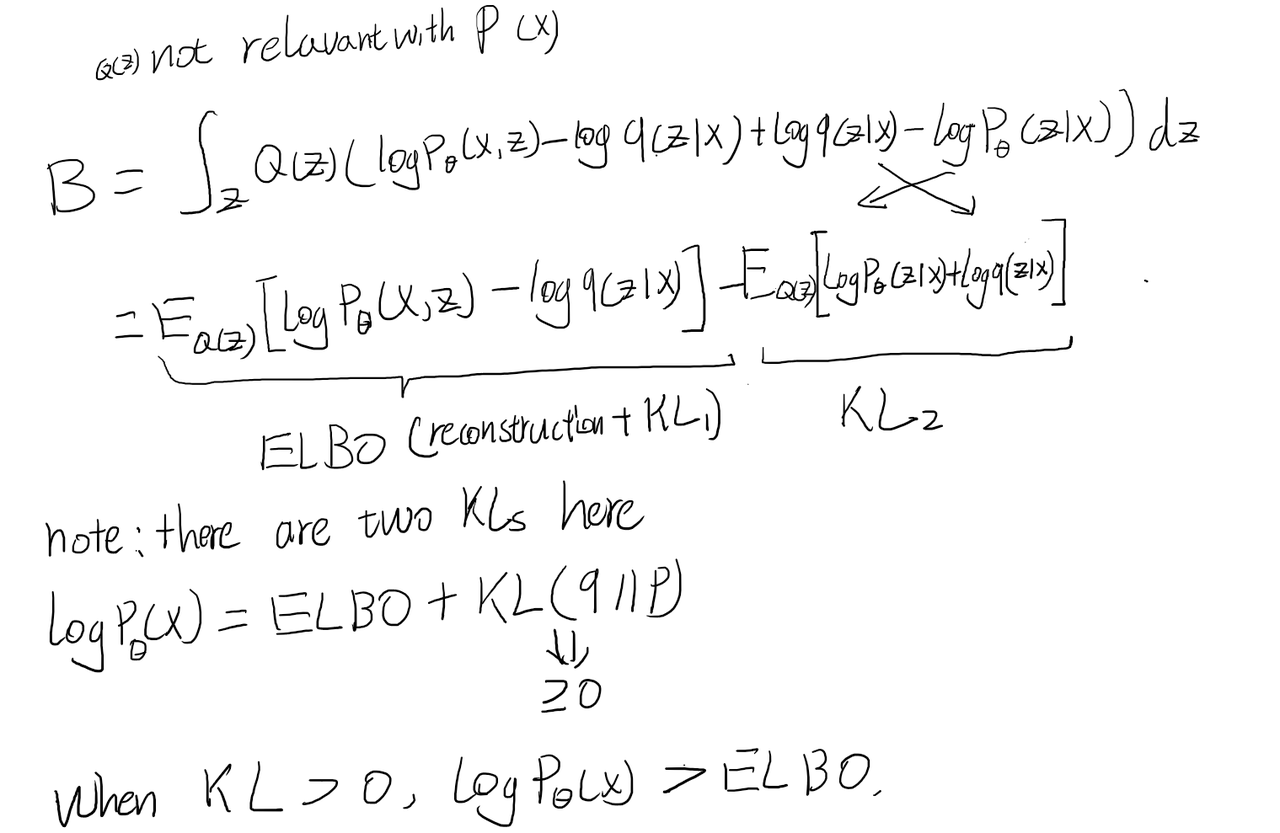 Q(z) not relavant with P(x)
B = ∫_z Q(z)(log P_θ(x,z) - log q(z|x) + log q(z|x) - log P_θ(z|x)) dz
= E_Q(z)[log P_θ(x,z) - log q(z|x)] - E_Q(z)[log P_θ(z|x) + log q(z|x)]
ELBO (reconstruction + KL₁) KL₂
note: there are two KLs here
log P_θ(x) = ELBO + KL(q || P)
⇓
≥0
When KL > 0, log P_θ(x) > ELBO.